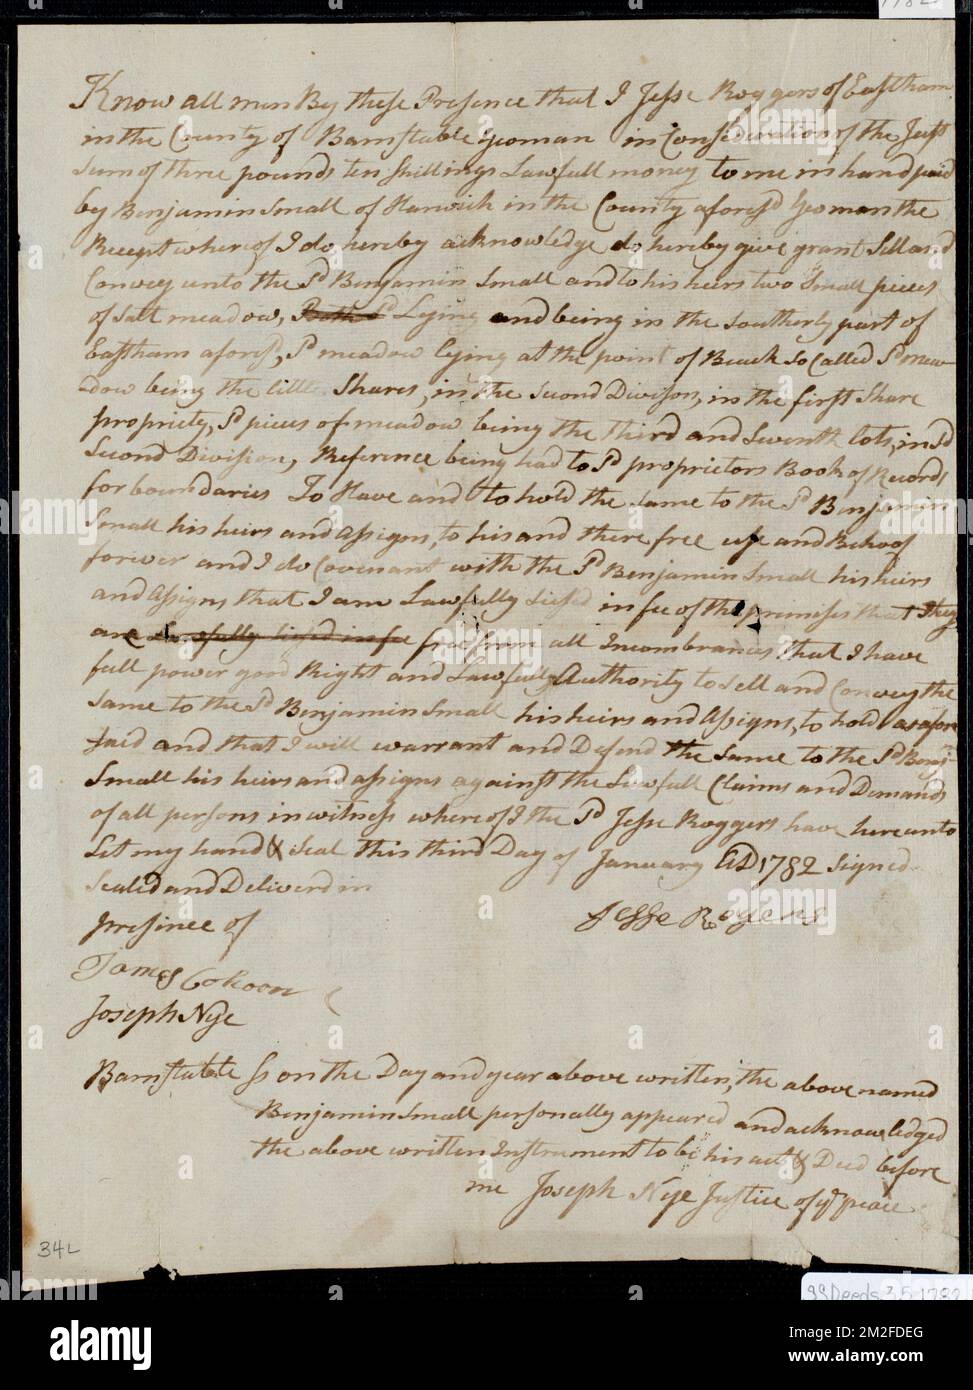 Know all men By these Presence that I Jesse Roggers of Eastham
in the County of Barnstable Yeoman in Consideration of the Just
sum of three pounds ten shillings Lawfull money to me in hand paid
by Benjamin Small of Harwich in the County aforesd Yeoman the
Receipt whereof I do hereby acknowledge do hereby give grant Sell and
Convey unto the sd Benjamin Small and to his heirs two Small pieces
of salt meadow, Lying and being in the southerly part of
Eastham aforesd, sd meadow lying at the point of Beach so Called sd mea-
dow being the little Shares, in the second Divison, in the first Share
propriety, sd pieces of meadow being the third and seventh lots, in sd
Second Division, Reference being had to sd proprietors Book of Records
for boundaries To Have and to hold the same to the sd Benjamin
Small his heirs and assigns, to his and there free use and Behoof
forever and I do Covenant with the sd Benjamin Small his heirs
and assigns that I am Lawfully Siesed in fee of the premises that they
are Lawfully siesed in fee free from all Incombrances that I have
full power good Right and Lawfully Authority to sell and Convey the
same to the sd Benjamin Small his heirs and assigns, to hold as afore
said and that I will warrant and Defend the same to the sd Benj-
Small his heirs and assigns against the Lawfull Claims and Demands
of all persons in witness whereof I the sd Jesse Roggers have hereunto
set my hand & seal this third Day of January AD 1782 Signed
Sealed and Deliverd in
presinee of
Jesse Rogers
James Cohoon
Joseph Nye
Barnstable ss on the Day and year above written, the above named
Benjamin Small personally appeared and acknowledged
the above written Instrument to be his act & Deed before
me Joseph Nye Justice of ye peace
34L
alamy
Image ID: 2M2FDEG
www.alamy.com